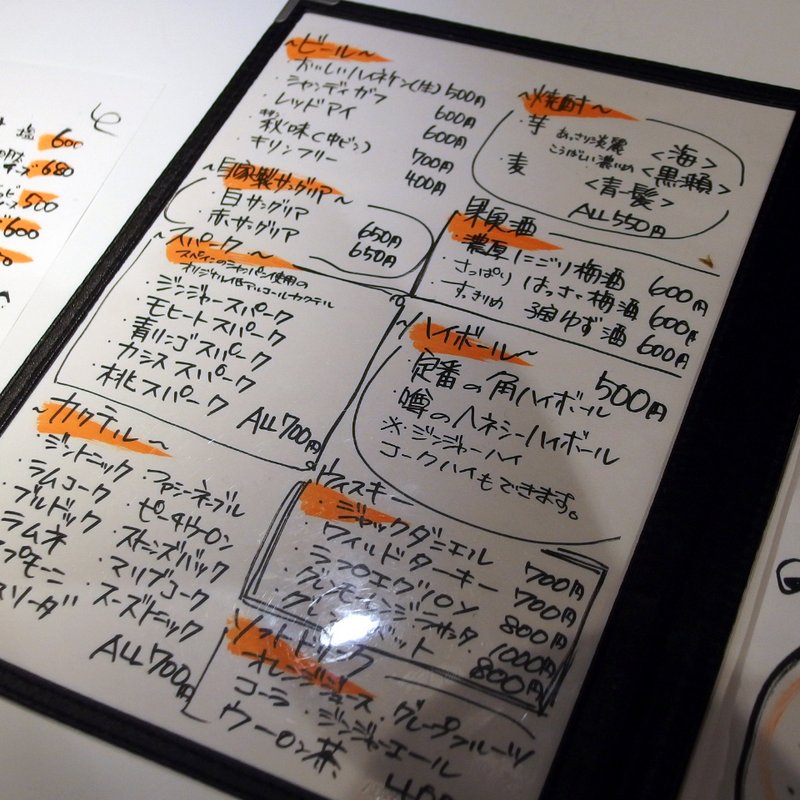 ~ビール~
・おいしいハイネケン(生) 500円
・シャンディガフ 600円
・レッドアイ 600円
・秋味(中ビン) 700円
・キリンフリー 400円
~自家製サングリア~
・白サングリア 650円
・赤サングリア 650円
~スパーク~
スペインのシャンパン使用の
オリジナル低アルコールカクテル
・ジンジャースパーク
・モヒートスパーク
・青リンゴスパーク
・カシススパーク
・桃スパーク
ALL 700円
~カクテル~
・ジントニック ・ファジーネーブル
・ラムコーク ・ピーチウーロン
ブルドック ・ストーンズバック
ラムネ ・マリブコーク
プモーニ ・スーズトニック
スソーダ
ALL 700円
~焼酎~
・芋 あっさり淡麗 <海>
こうばしい濃いめ <黒瀬>
・麦 <青髪>
ALL 550円
果実酒
・濃厚にごり梅酒 600円
・さっぱり はっさく梅酒 600円
・すっきりめ ゆず酒 600円
~ハイボール~
定番の角ハイボール 500円
・噂のハネシーハイボール
※ジンジャーハイ
コークハイもできます。
ウィスキー
・ジャックダニエル 700円
・ワイルドターキー 700円
・ラフロエグ10Y 800円
・グレンモーレンジ ラサンタ 1000円
800円
ソフトドリンク
オレンジジュース ・グレープフルーツ
コーラ ・ジンジャーエール
ウーロン茶
塩 600
チーズ 680
500
600